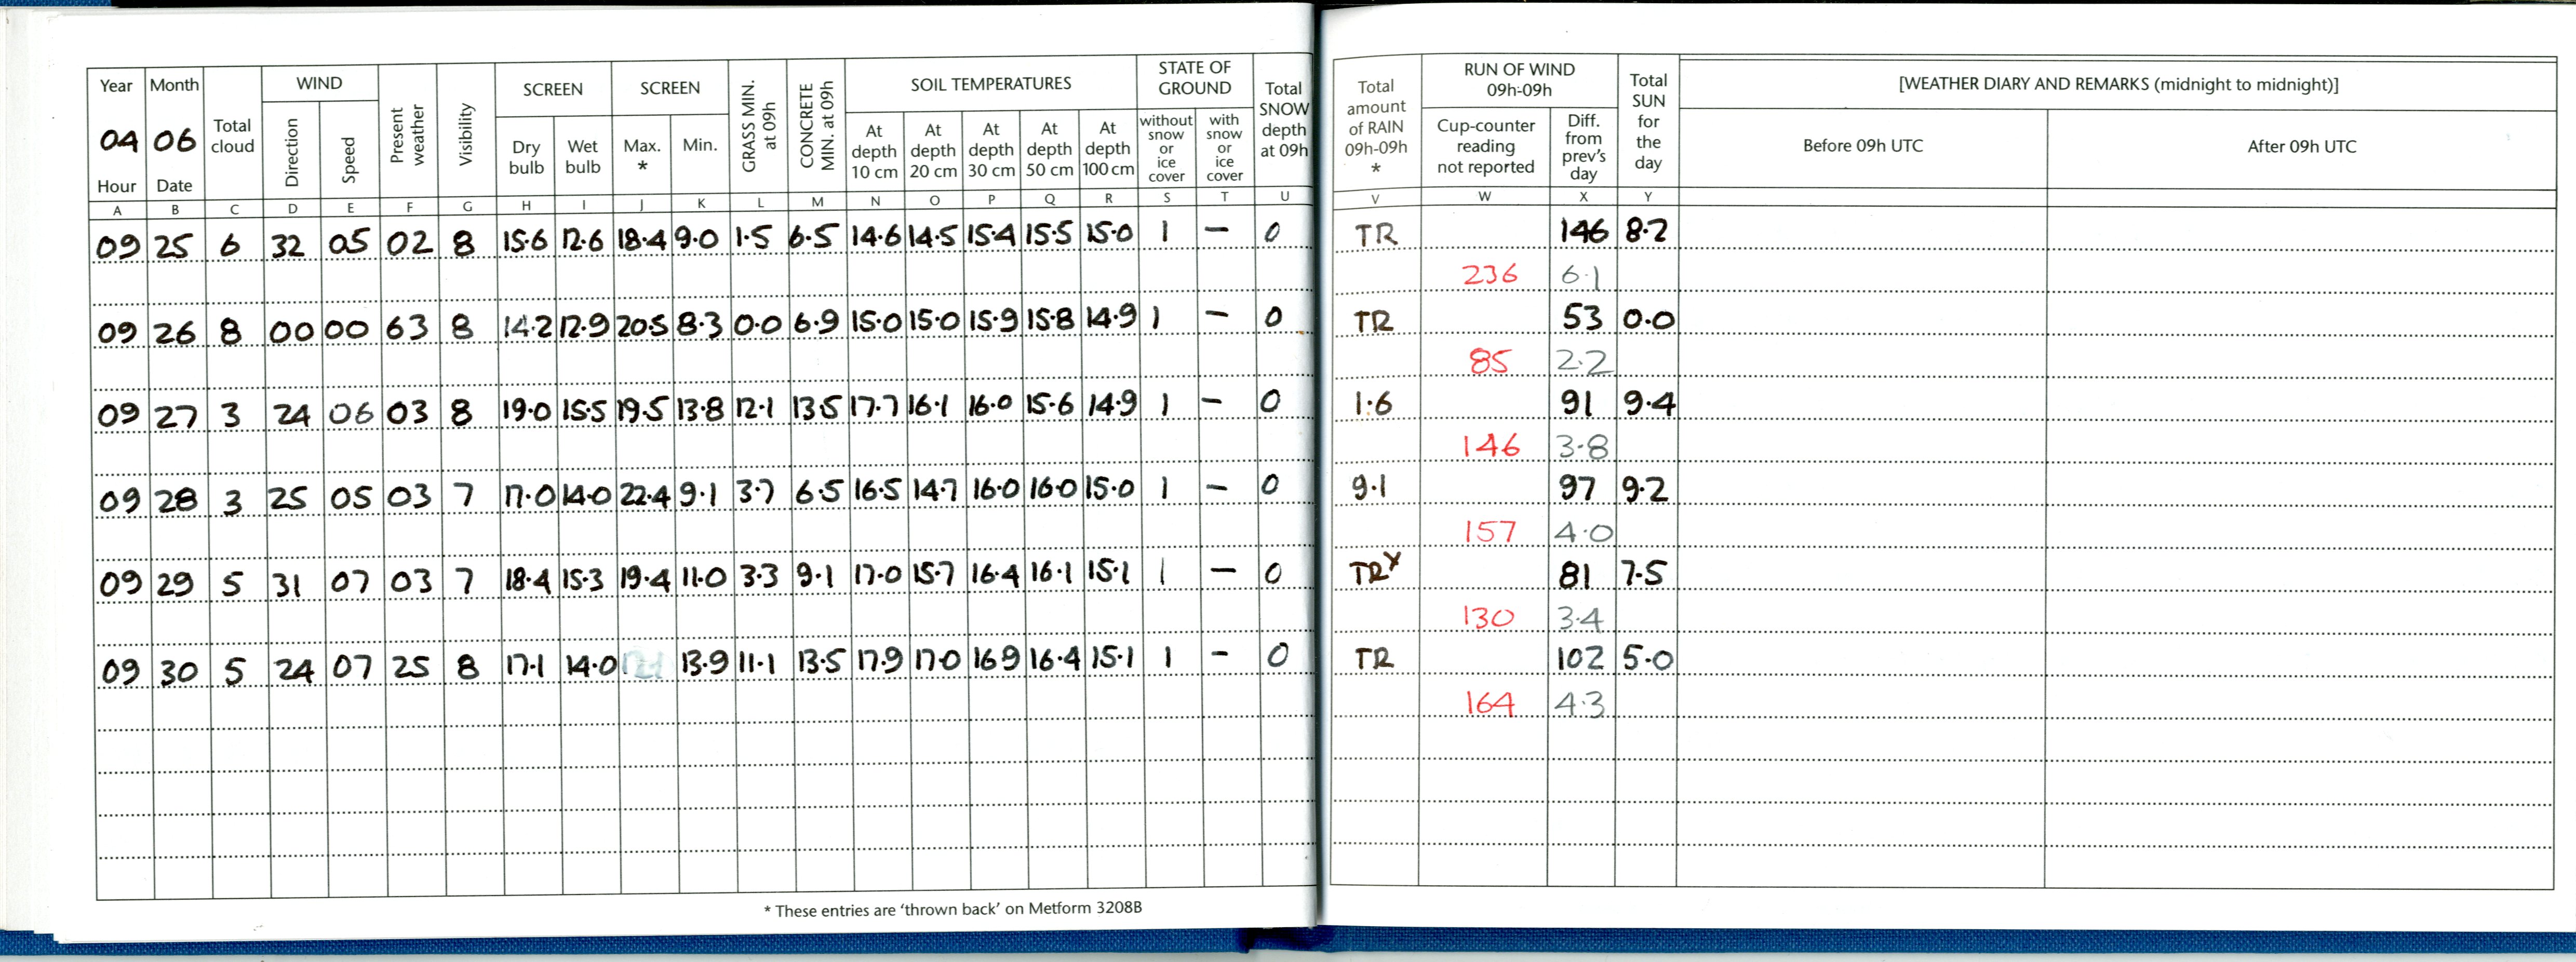 Year Month Total cloud WIND Present weather Visibility SCREEN SCREEN GRASS MIN. at 09h CONCRETE MIN. at 09h SOIL TEMPERATURES STATE OF GROUND Total SNOW depth at 09h Total amount of RAIN 09h-09h * RUN OF WIND 09h-09h Total SUN for the day [WEATHER DIARY AND REMARKS (midnight to midnight)]
04 06 Direction Speed Dry bulb Wet bulb Max. * Min. At depth 10 cm At depth 20 cm At depth 30 cm At depth 50 cm At depth 100 cm without snow or ice cover with snow or ice cover Cup-counter reading not reported Diff. from prev's day Before 09h UTC After 09h UTC
Hour Date
A B C D E F G H I J K L M N O P Q R S T U V W X Y
09 25 6 32 05 02 8 15.6 12.6 18.4 9.0 1.5 6.5 14.6 14.5 15.4 15.5 15.0 1 – 0 TR 146 8.2
236 6.1
09 26 8 00 00 63 8 14.2 12.9 20.5 8.3 0.0 6.9 15.0 15.0 15.9 15.8 14.9 1 – 0 TR 53 0.0
85 2.2
09 27 3 24 06 03 8 19.0 15.5 19.5 13.8 12.1 13.5 17.7 16.1 16.0 15.6 14.9 1 – 0 1.6 91 9.4
146 3.8
09 28 3 25 05 03 7 17.0 14.0 22.4 9.1 3.7 6.5 16.5 14.7 16.0 16.0 15.0 1 – 0 9.1 97 9.2
157 4.0
09 29 5 31 07 03 7 18.4 15.3 19.4 11.0 3.3 9.1 17.0 15.7 16.4 16.1 15.1 1 – 0 TRY 81 7.5
130 3.4
09 30 5 24 07 25 8 17.1 14.0 13.9 11.1 13.5 17.9 17.0 16 9 16.4 15.1 1 – 0 TR 102 5.0
164 4.3
* These entries are ‘thrown back’ on Metform 3208B